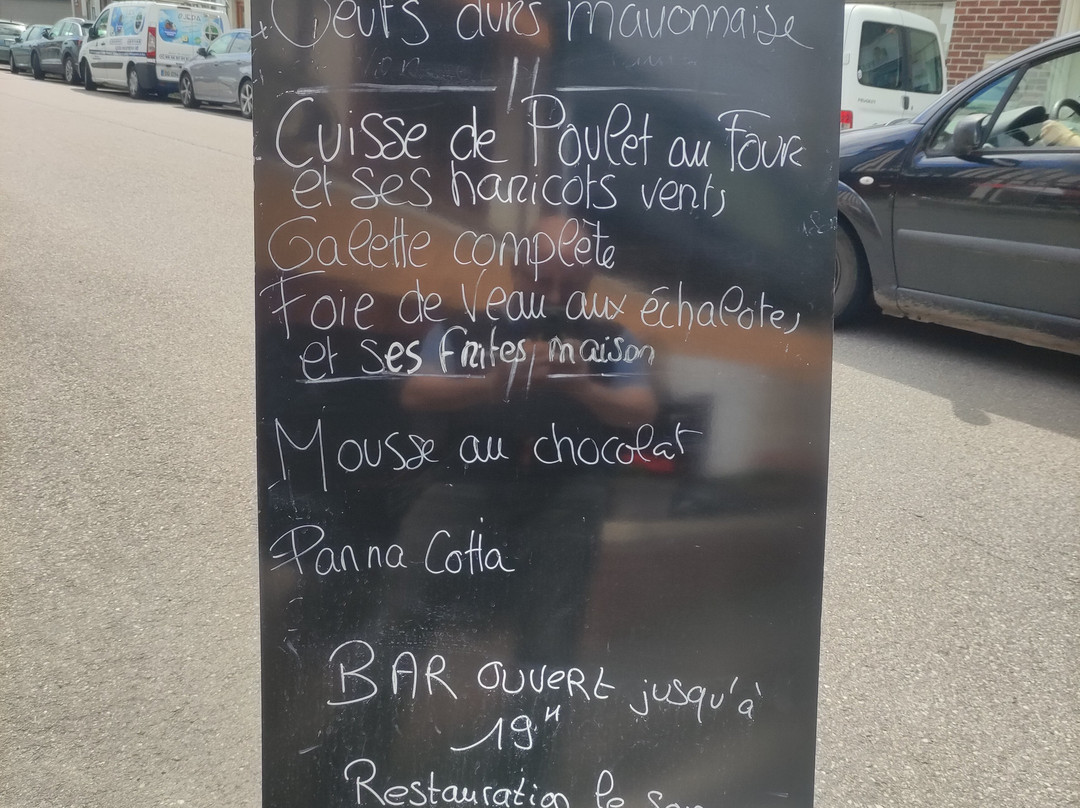 Oeufs durs mayonnaise
Cuisse de Poulet au Four
et ses haricots verts
Galette complète
Foie de Veau aux échalotes
et ses frites maison
Mousse au chocolat
Panna Cotta
BAR OUVERT jusqu'à
19H
Restauration le